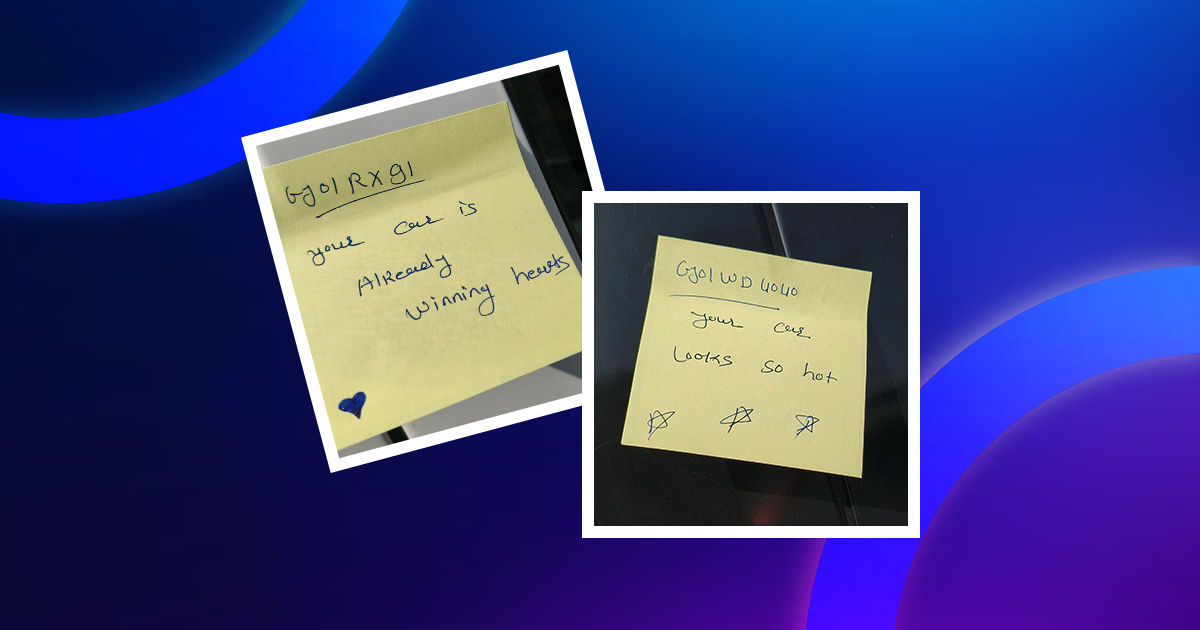 GJ01 RX 91
your car is
Already
winning hearts
GJ01 WD 4040
your car
Looks so hot